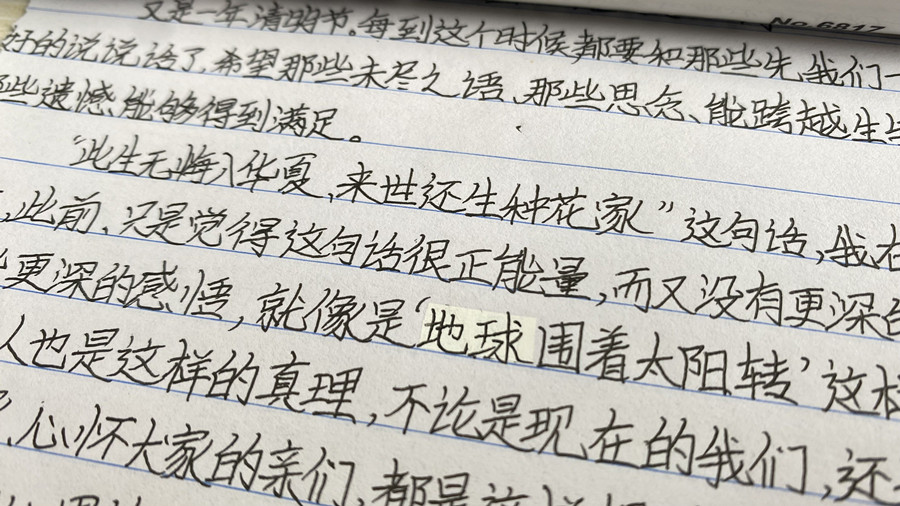 No 6817
又是一年清明节。每到这个时候都要和那些先我们一
好的说说话了,希望那些未尽之语、那些思念、能跨越生与
些遗憾能够得到满足。
“此生无悔入华夏,来世还生种花家”这句话,我在
,此前,只是觉得这句话很正能量,而又没有更深的
更深的感悟,就像是‘地球围着太阳转’这样
人也是这样的真理,不论是现在的我们,还
,心怀大家的亲们,都是这样